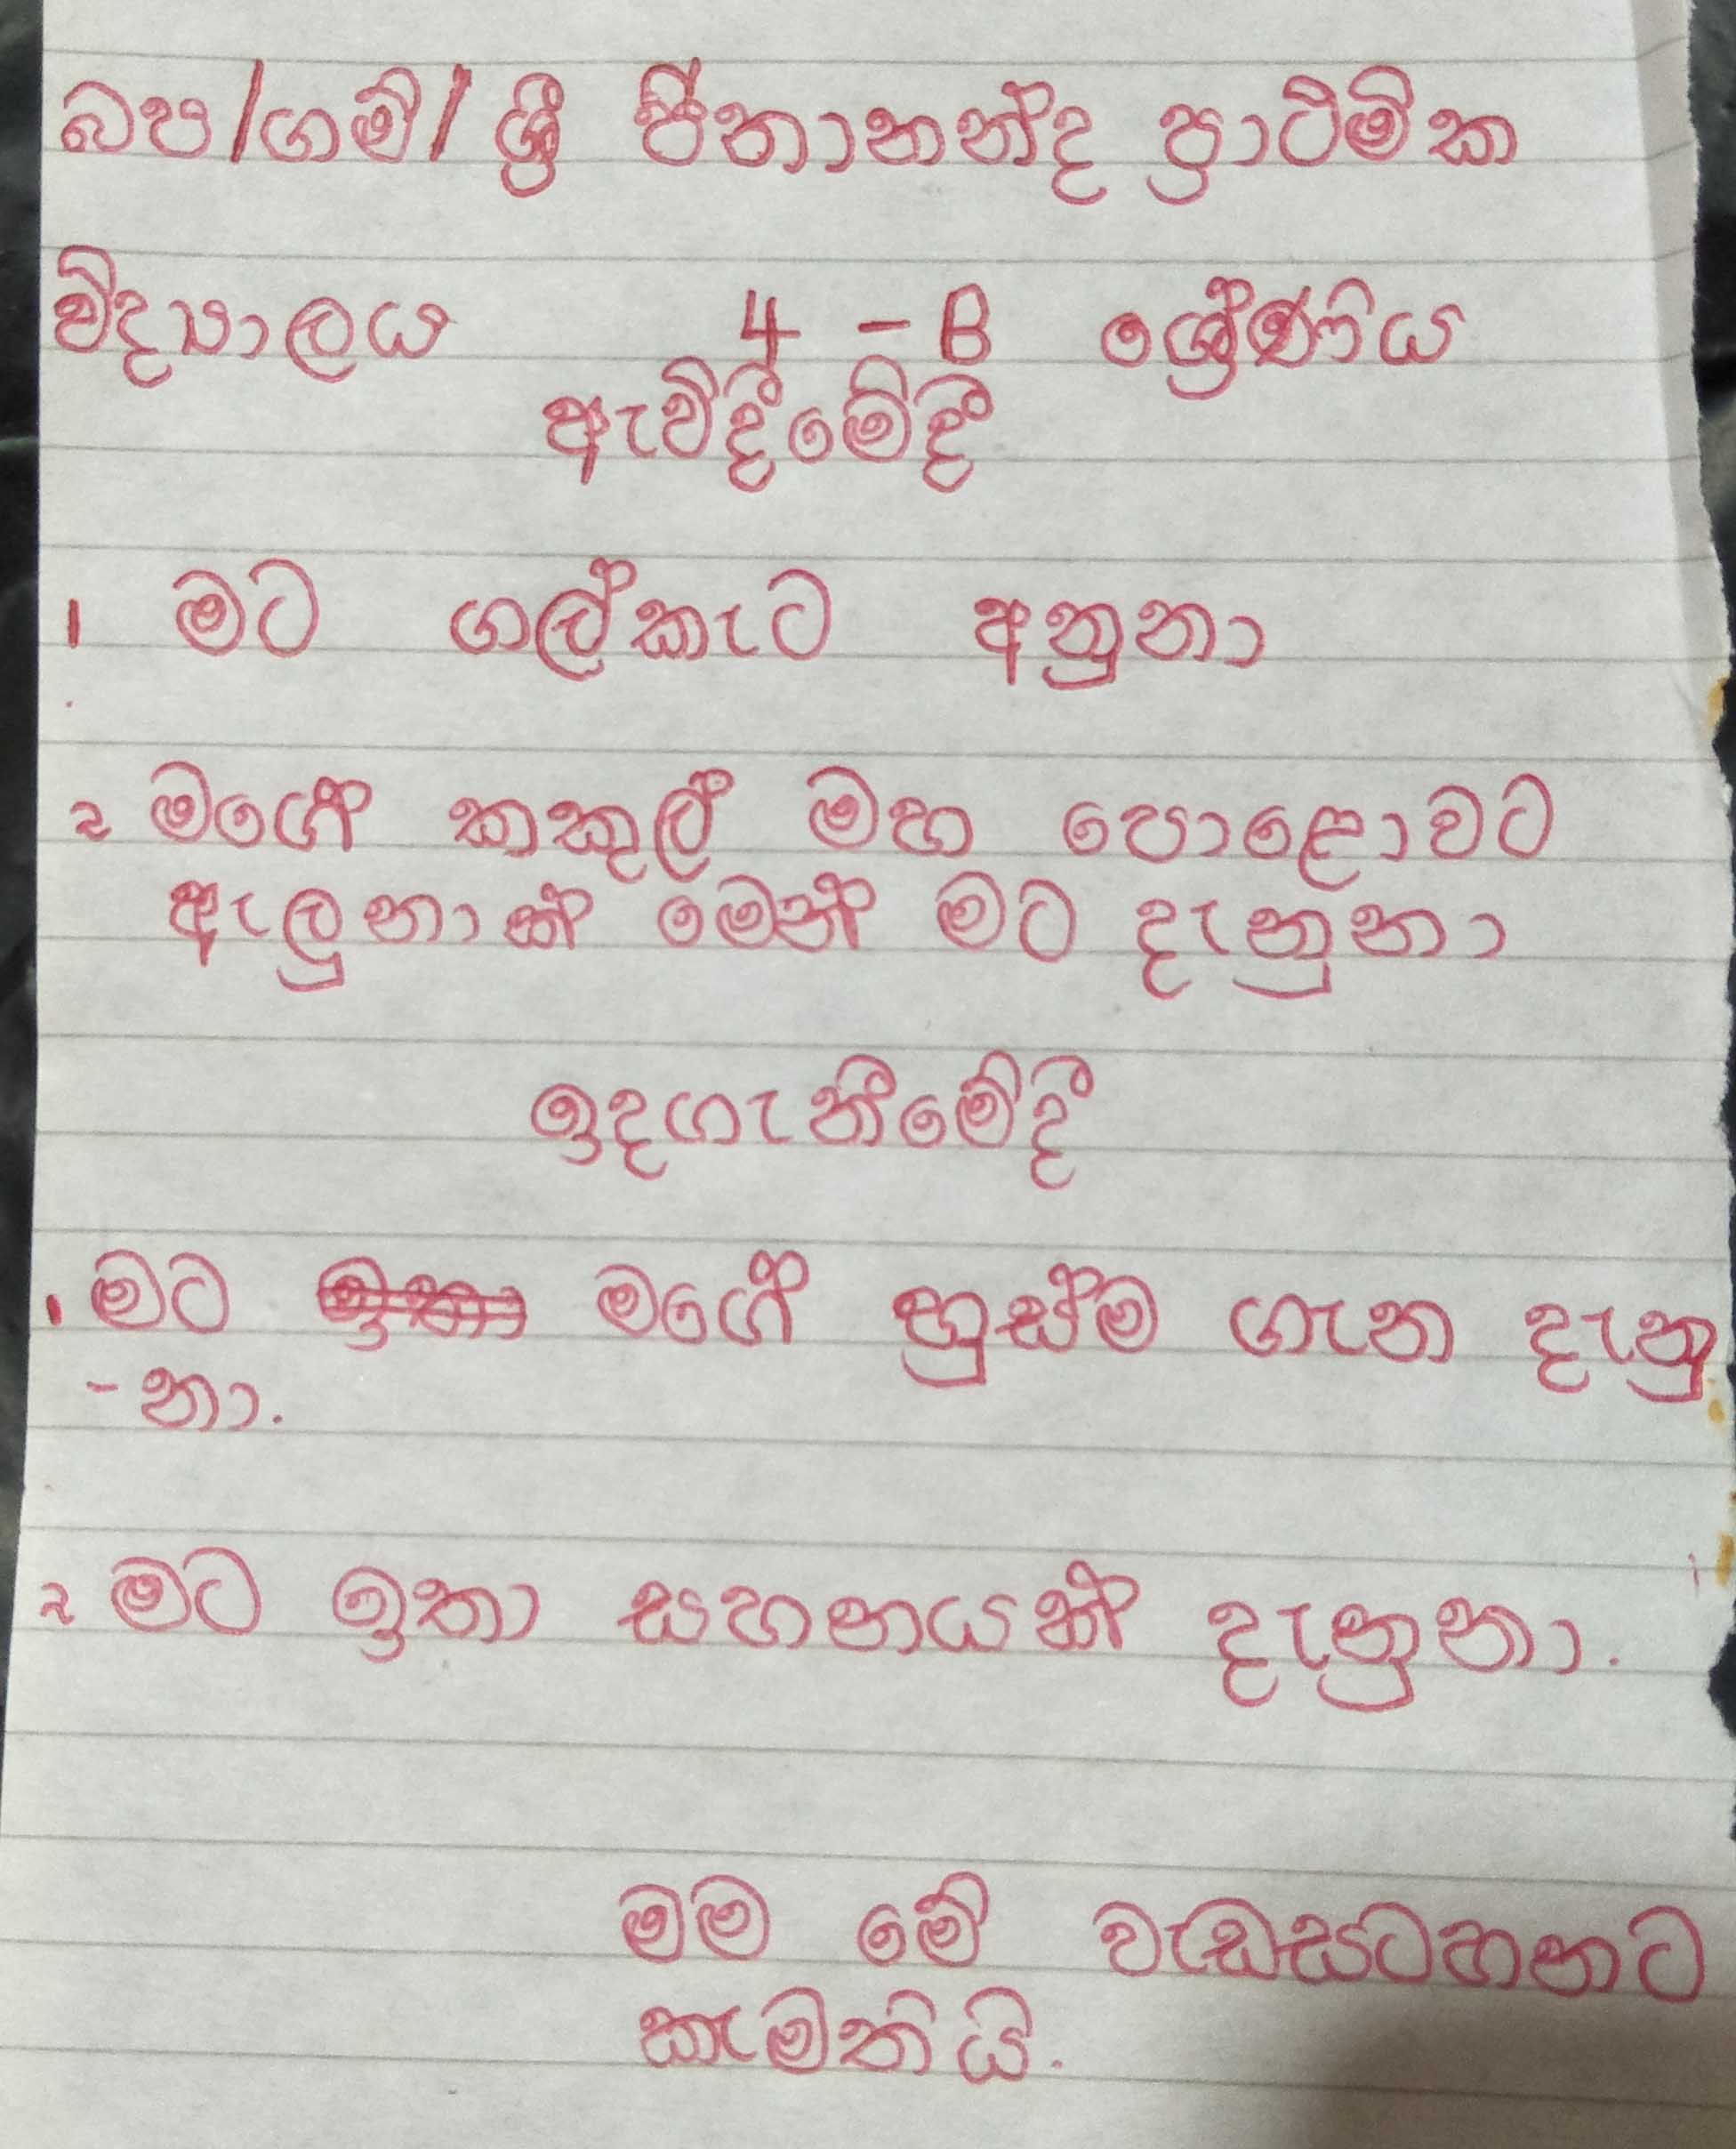 බප/ගම්/ ශ්‍රී ජිනානන්ද ප්‍රාථමික
විද්‍යාලය 4 - B ශ්‍රේණිය
ඇවිදීමේදී
1 මට ගල්කැට අනුනා
2 මගේ කකුල් මහ පොළොවට
ඇලුනාක් මෙන් මට දැනුනා
ඉදගැනීමේදී
1 මට මගේ හුස්ම ගැන දැනු
- නා.
2 මට ඉතා සහනයක් දැනුනා.
මම මේ වැඩසටහනට
කැමතියි.